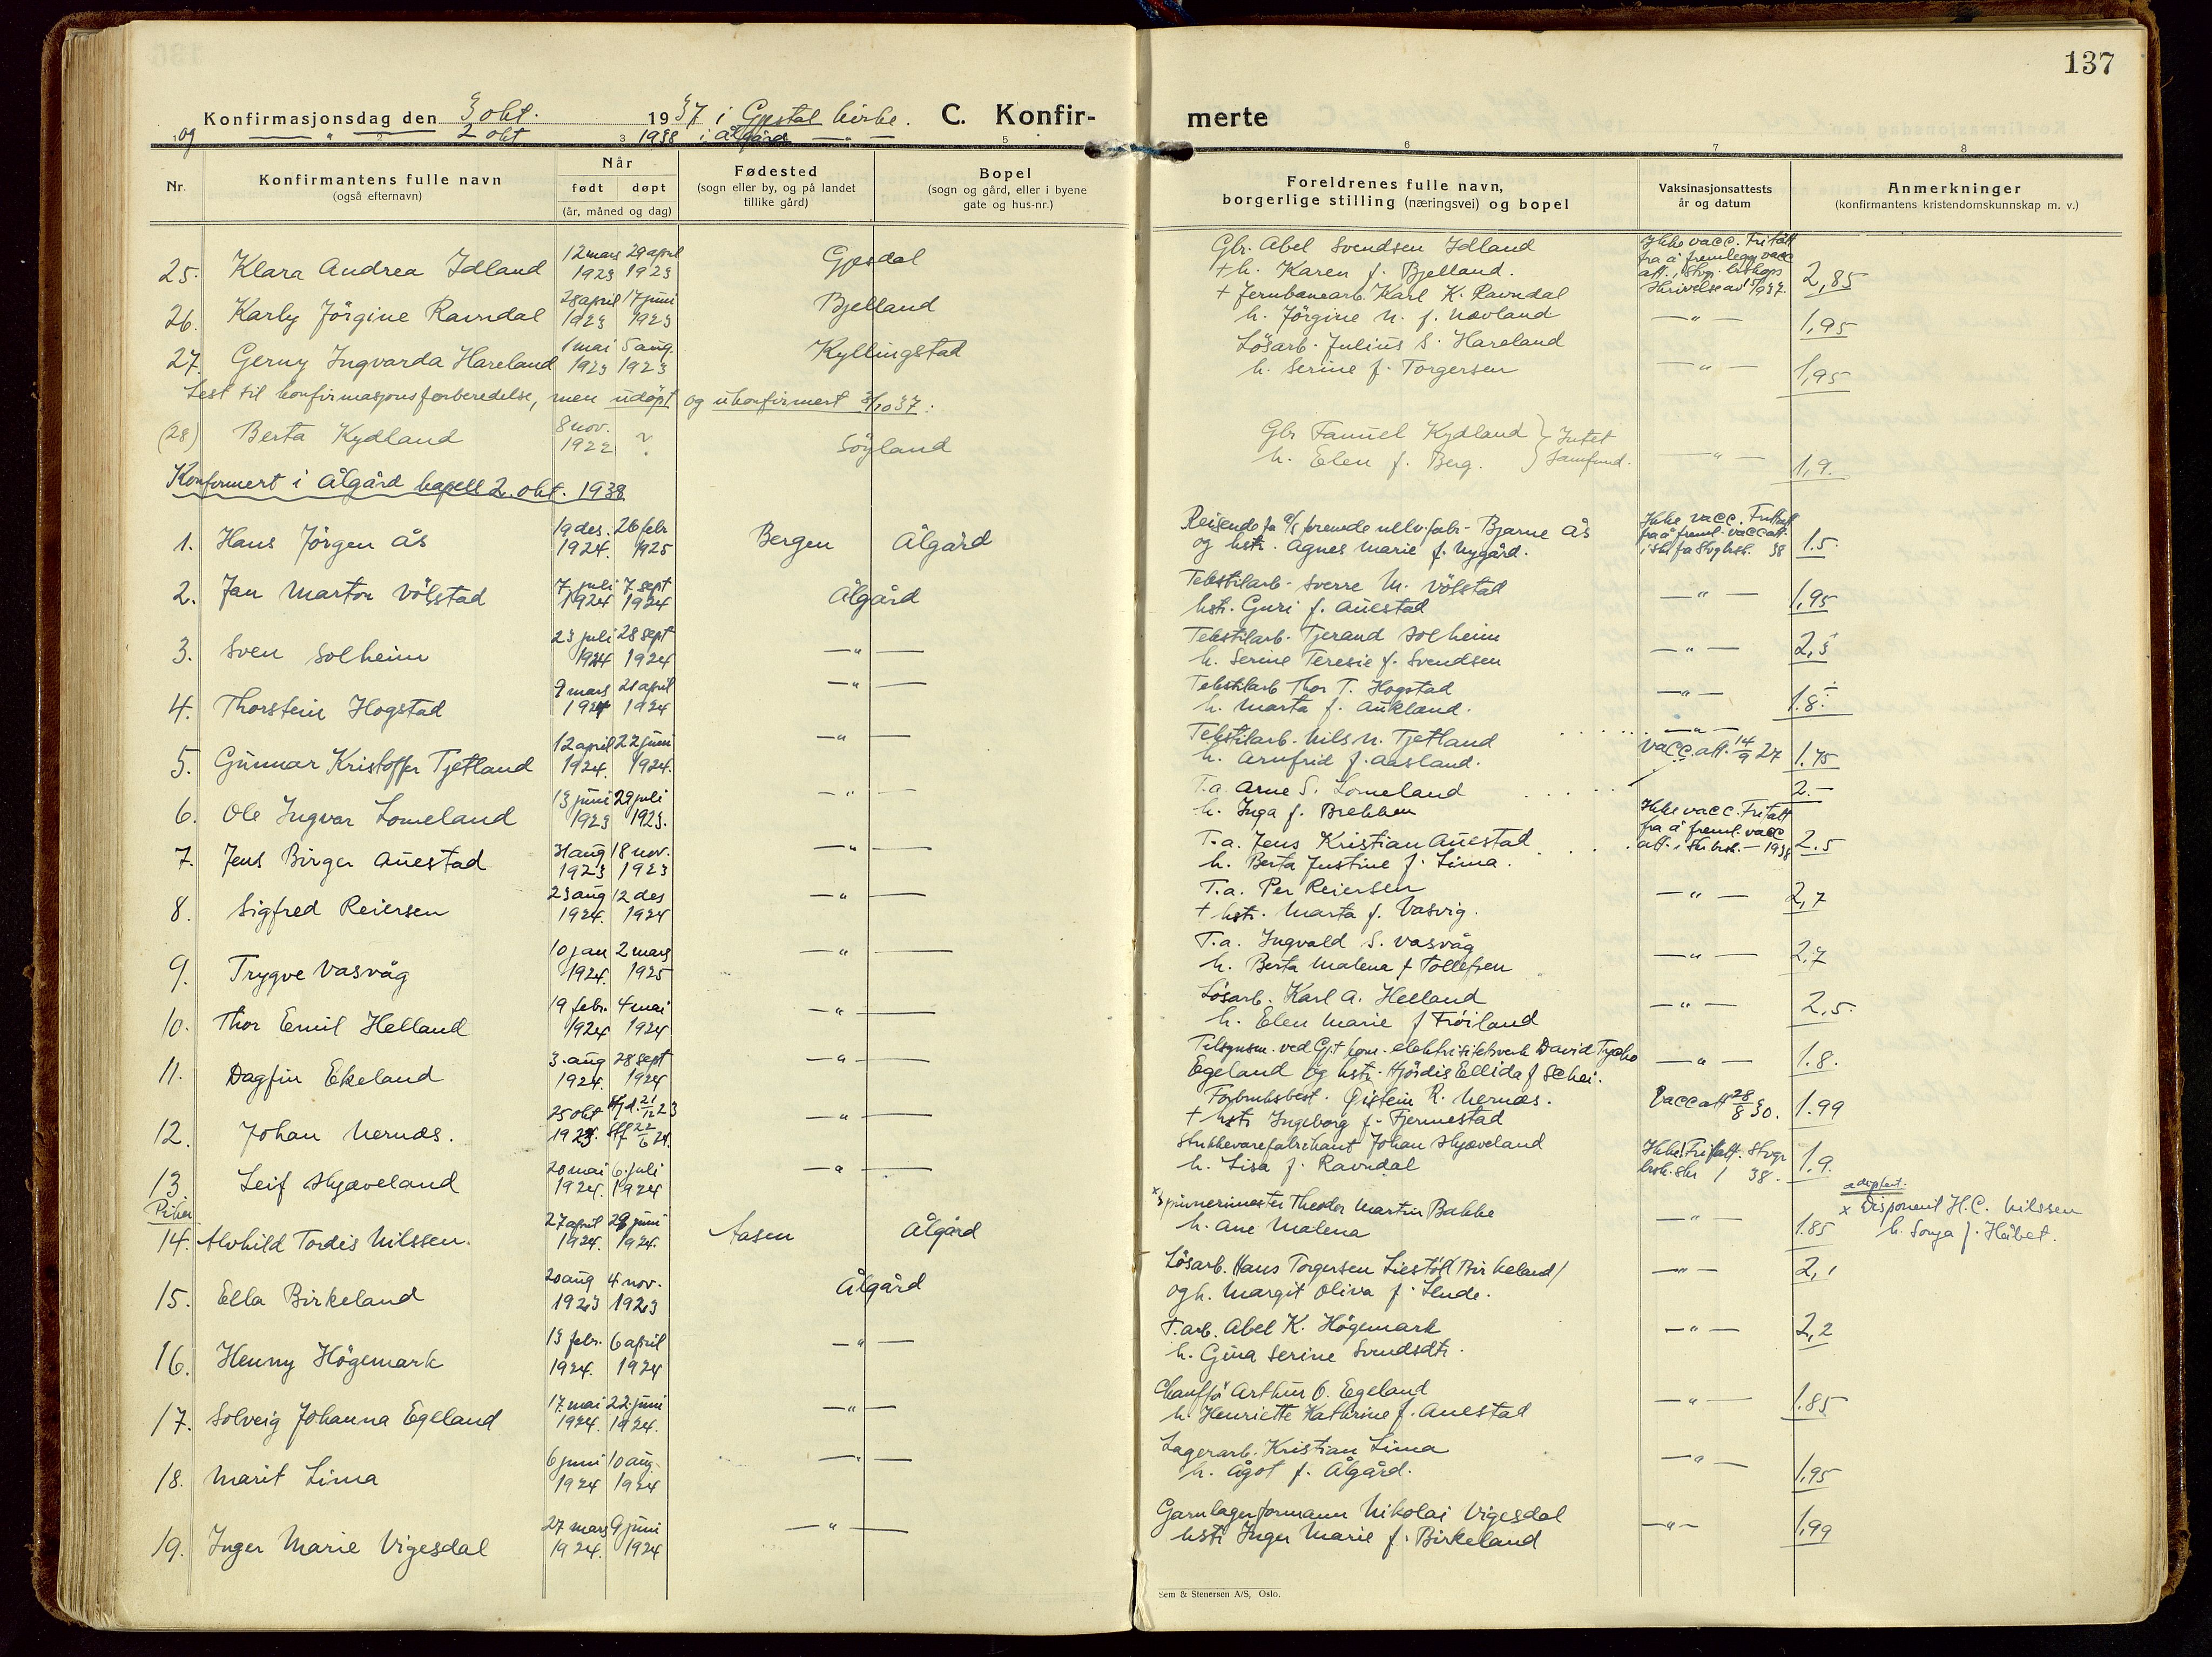 137
Konfirmasjonsdag den 3 okt. 1937 i Gjestal kirke. C. Konfir- merte
og — " — 2 okt. 1938 i Ålgård — " —
3 5 6 7 8
Nr. Konfirmantens fulle navn (også efternavn)
Når født døpt (år, måned og dag)
Fødested (sogn eller by, og på landet tillike gård)
Bopel (sogn og gård, eller i byene gate og hus-nr.)
Foreldrenes fulle navn, borgerlige stilling (næringsvei) og bopel
Vaksinasjonsattests år og datum
Anmerkninger (konfirmantens kristendomskunnskap m. v.)
25. Klara Andrea Idland 12 mars 1923 29 april 1923 Gjesdal
Gbr. Abel Svendsen Idland
+ h. Karen f. Bjelland.
Ikke vacc. Fritatt fra å fremlegge vacc att. i Stvgr. biskops skrivelse av 1937. 2,85
26. Karly Jörgine Ravndal 28 april 1923 17 juni 1923 Bjelland
+ Jernbanearb. Karl K. Ravndal
h. Jörgine N. f. Nævland
— " — 1,95
27. Gerny Ingvarda Hareland 1 mai 1923 5 aug. 1923 Kyllingstad
Lösarb. Julius S. Hareland
h. Serine f. Torgersen
— " — 1,95
Lest til konfirmasjonsforberedelse, men udöpt og ukonfirmert 3/10 37.
(28) Berta Kydland 8 nov. 1922 ? Söyland
Gbr Fanuel Kydland } Intet
h. Elen f. Berg. } Samfund.
— " — 1,9.
Konfirmert i Ålgård kapell 2. okt. 1938
1. Hans Jörgen Ås 19 des. 1924. 26 febr 1925 Bergen Ålgård
Reisende fa a/s forenede ullv.fabr. Bjarne Ås
og hstr. Agnes Marie f. Nygård.
Ikke vacc. Fritatt fra å freml. vacc att. i skr fa Stvg bisk. 38 1.5.
2. Jan Marton Völstad 7 juli 1924 7 sept 1924 Ålgård
Tekstilarb. Sverre M. Völstad
hstr. Guri f. Auestad
— " — 1,95
3. Sven Solheim 23 juli 1924 28 sept 1924 — " —
Tekstilarb. Tjerand Solheim
h. Serine Teresie f. Svendsen
— " — 2,3
4. Thorstein Hogstad 9 mars 1924 21 april 1924 — " —
Tekstilarb Thor T. Hogstad
h. Marta f. Aukland.
— " — 1.8 ÷
5. Gunnar Kristoffer Tjetland 12 april 1924. 22 juni 1924. — " —
Tekstilarb. Nils N. Tjetland
h. Arnfrid f. Aasland.
— " —
Vacc. att. 14/9 27 1.75
6. Ole Ingvar Lomeland 13 juni 1923 29 juli 1923. — " —
T.a. Arne S. Lomeland
h. Inga f. Brekken
2.—
7. Jens Birger Auestad 31 aug 1923 18 nov. 1923 — " —
T.a. Jens Kristian Auestad
h. Berta Justine f. Lima.
Ikke vacc. Fritatt fra å freml. vacc att. i skr bisk. — 1938 2.5
8. Sigfred Reiersen 23 aug 1924. 12 des 1924 — " —
T.a. Per Reiersen
+ hstr. Marta f. Vasvig.
— " — 2,7
9. Trygve Vasvåg 10 jan 1924. 2 mars 1925 — " —
T.a. Ingvald S. Vasvåg
h. Berta Malena f Tollefsen
— " — 2,7
10. Thor Emil Helland 19 febr. 1924 4 mai 1924 — " —
Lösarb. Karl A. Helland
h. Elen Marie f Fröiland
— " — 2,5.
11. Dagfin Ekeland 3. aug 1924. 28 sept 1924 — " —
Tilsynsm. ved Gjt kom. elektrisitetsverk David Tycho
Egeland og hstr. Hjördis Ellida f Schei.
— " — 1.8.
12. Johan Nernæs. 25 okt 1923. Hjd. 21/12 23 Stf 22/6 24. — " —
Forbruksbest. Öistein R. Nernæs.
+ hstr Ingeborg f. Fjermestad
Vacc att 28/8 30. 1.99
13. Leif Skjæveland 20 mai 1924. 6. juli 1924 — " —
Stukkevarefabrikant Johan Skjæveland
h. Lisa f. Ravndal
Ikke! Fritatt. Stvgr bisk. skr 1 38. 1,9.
Piker
14. Alvhild Tordis Nilssen. 27 april 1924. 29 juni 1924. Aasen Ålgård
x Spinnerimester Theodor Martin Bakke
h. Ane Malena
— " — 1.85
adoptert.
x Disponent H.C. Nilssen
h. Sonja f. Håbet.
15. Ella Birkeland 20 aug 1923 4 nov. 1923 Ålgård
Lösarb. Hans Torgersen Liestöl (Birkeland)
og h. Margit Oliva f. Lende.
— " — 2,1
16. Henny Högemark 13 febr. 1924. 6 april 1924 — " —
T. arb. Abel K. Högemark
h. Gina Serine Svendsdtr.
— " — 2,2
17. Solveig Johanna Egeland 17. mai 1924. 22 juni 1924. — " —
Chaufför Arthur O. Egeland
h. Henriette Kathrine f. Auestad
— " — 1.85
18. Marit Lima 6 juni 1924 10 aug. 1924 — " —
Lagerarb. Kristian Lima
h. Ågot f. Ålgård.
— " — 1,95
19. Inger Marie Vigesdal 27 mars 1924. 9 juni 1924 — " —
Garnlagerformann Nikolai Vigesdal
hstr Inger Marie f. Birkeland
— " — 1,99
Sem & Stenersen A/S, Oslo.